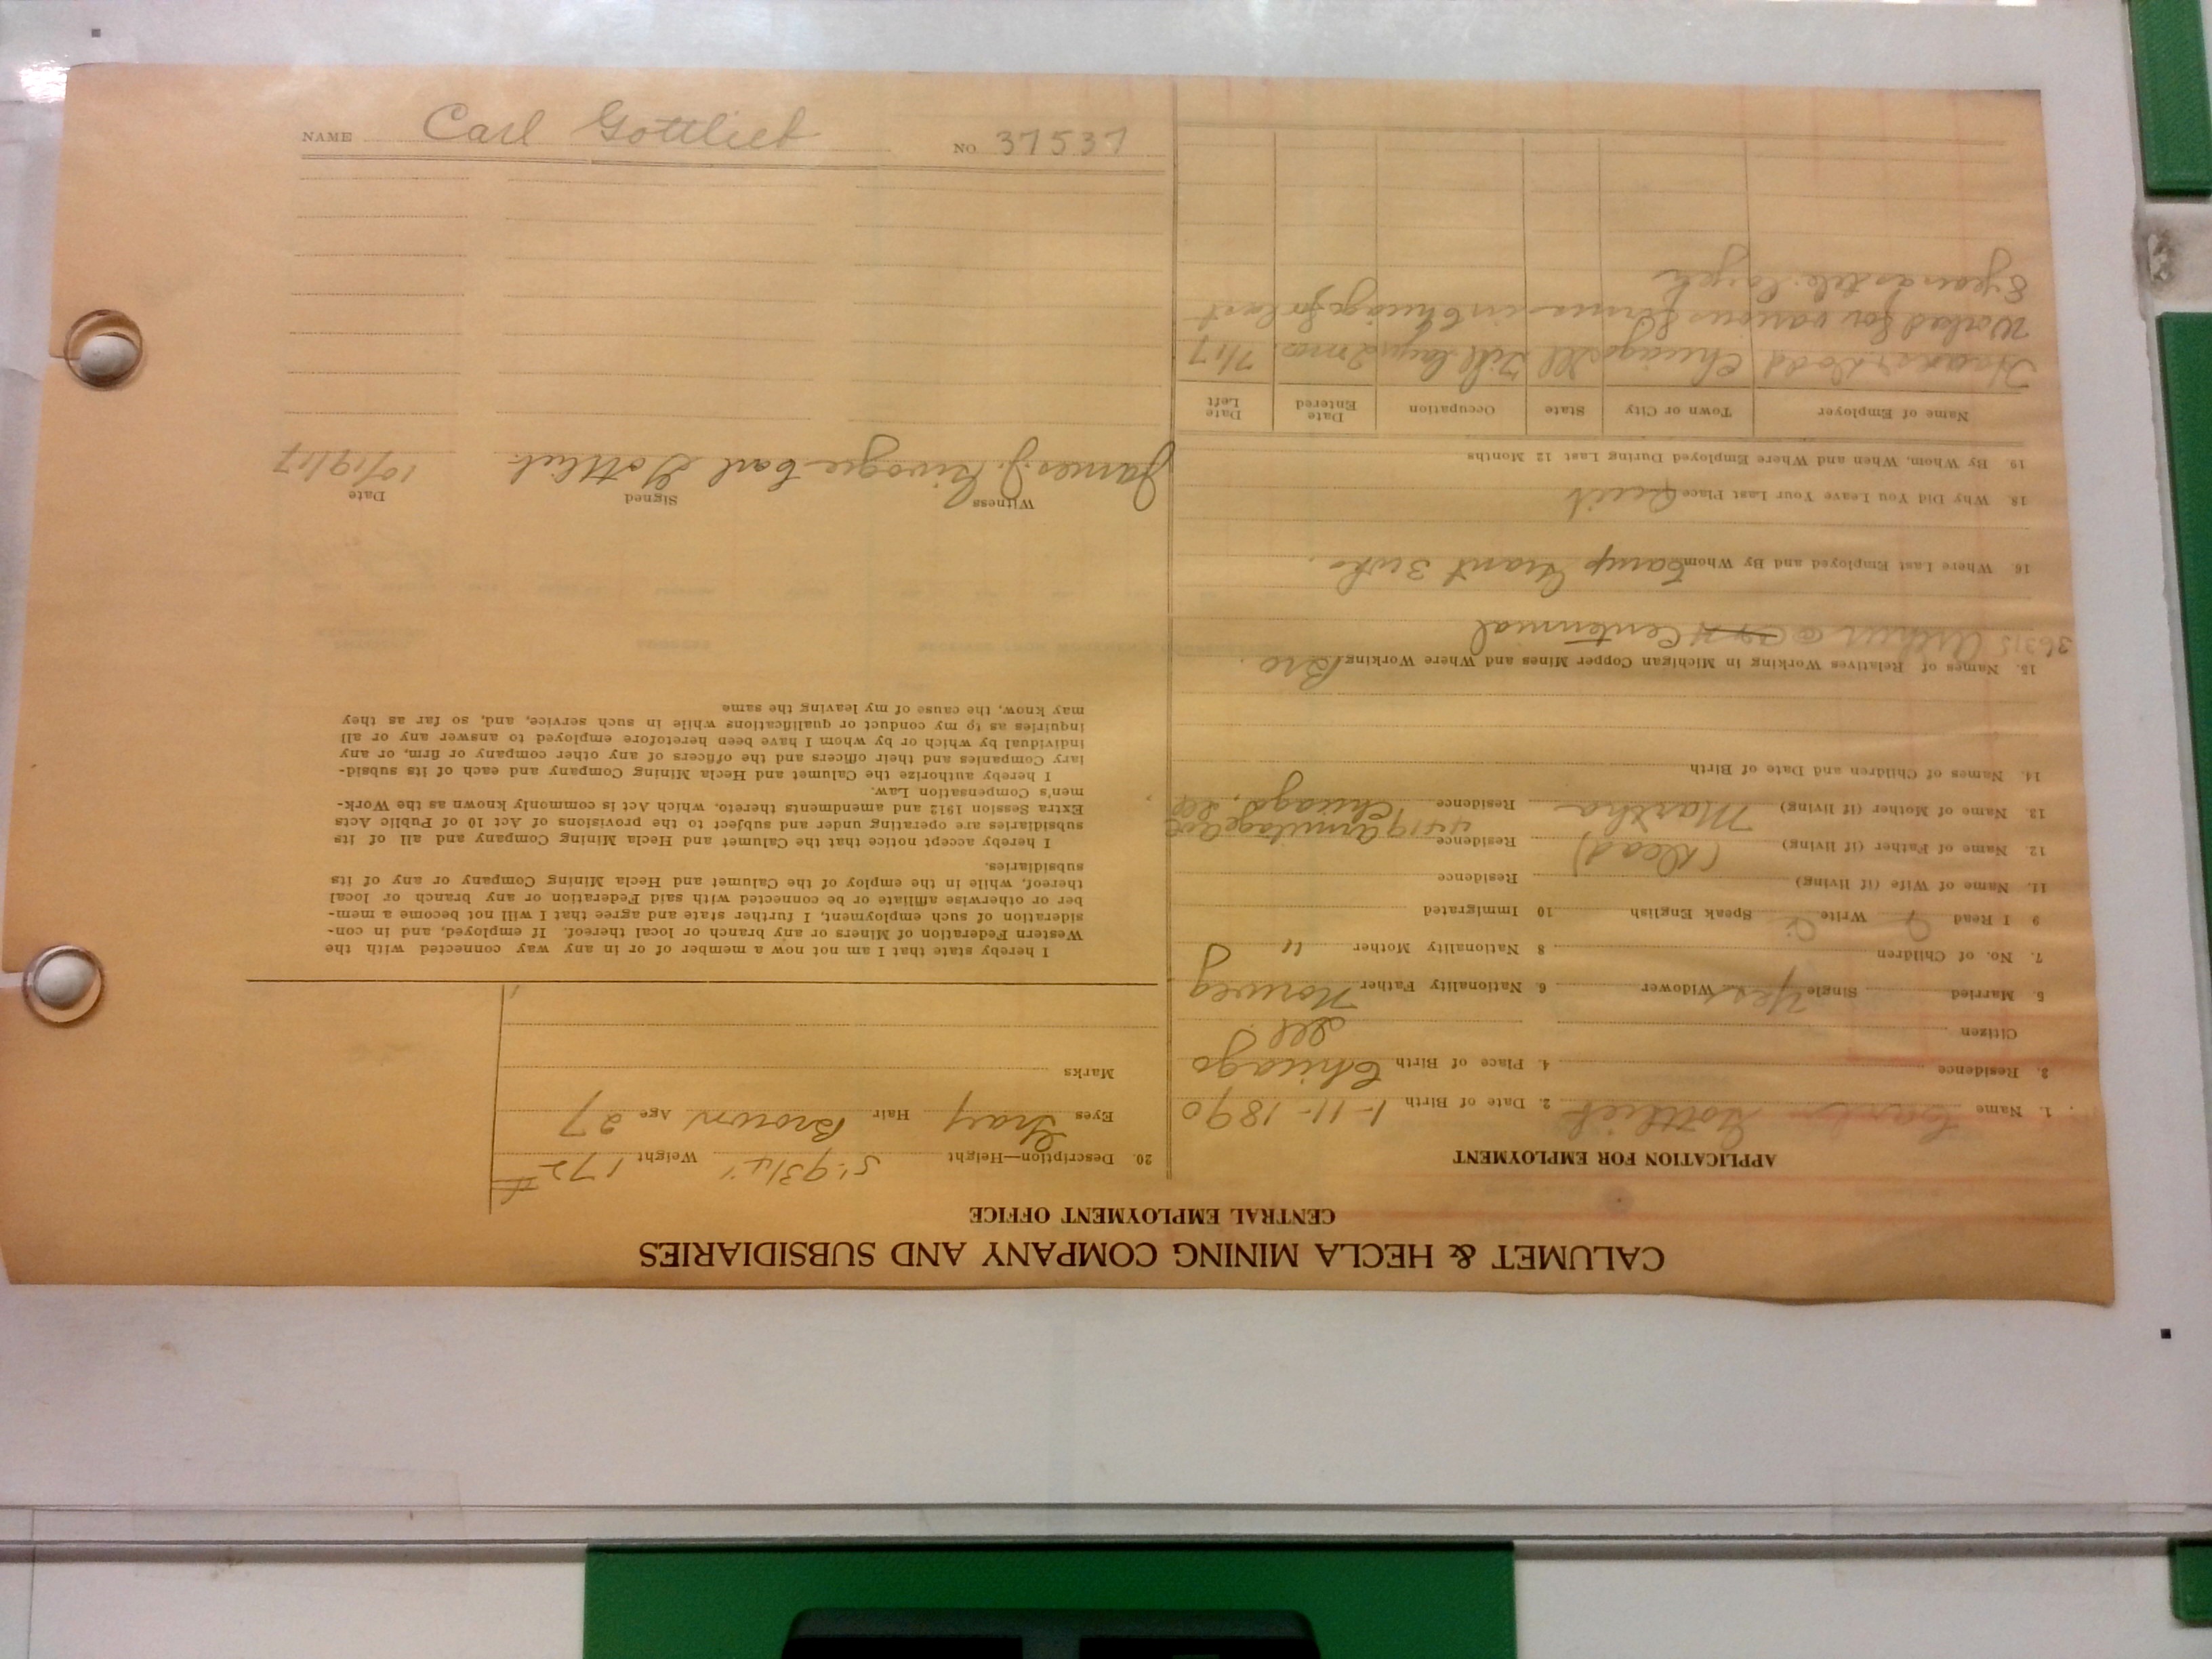 NAME Carl Gottlieb NO. 37537
CALUMET & HECLA MINING COMPANY AND SUBSIDIARIES
CENTRAL EMPLOYMENT OFFICE
APPLICATION FOR EMPLOYMENT
1. Name Carl Gottlieb 2. Date of Birth 1-11-1890
3. Residence 4. Place of Birth Chicago
Citizen Ill
5. Married Single Yes Widower 6. Nationality Father Norweg
7. No. of Children 8 Nationality Mother "
9 I Read Write Speak English 10 Immigrated
11. Name of Wife (if living) Residence
12. Name of Father (if living) (Dead) Residence 4419 Armitage Ave
13. Name of Mother (if living) Martha Residence Chicago, Ill
14. Names of Children and Date of Birth
15. Names of Relatives Working in Michigan Copper Mines and Where Working Bro.
36315 Arthur @ Centennial
16. Where Last Employed and By Whom Camp Grant 3 wks.
18. Why Did You Leave Your Last Place Quit
19. By Whom, When and Where Employed During Last 12 Months
Name of Employer Town or City State Occupation Date Entered Date Left
Dodd Chicago Ill Tile layer 2 mos. 7/17
Worked for various firms in Chicago for last
8 years tile layer
20. Description—Height 5' 9 3/4" Weight 172 #
Eyes Gray Hair Brown Age 27
Marks
I hereby state that I am not now a member of or in any way connected with the
Western Federation of Miners or any branch or local thereof. If employed, and in con-
sideration of such employment, I further state and agree that I will not become a mem-
ber or otherwise affiliate or be connected with said Federation or any branch or local
thereof, while in the employ of the Calumet and Hecla Mining Company or any of its
subsidiaries.
I hereby accept notice that the Calumet and Hecla Mining Company and all of its
subsidiaries are operating under and subject to the provisions of Act 10 of Public Acts
Extra Session 1912 and amendments thereto, which Act is commonly known as the Work-
men's Compensation Law.
I hereby authorize the Calumet and Hecla Mining Company and each of its subsid-
iary Companies and their officers and the officers of any other company or firm, or any
individual by which or by whom I have been heretofore employed to answer any or all
inquiries as to my conduct or qualifications while in such service, and, so far as they
may know, the cause of my leaving the same
Witness Signed Date
James J. Carl Gottlieb 10/19/17